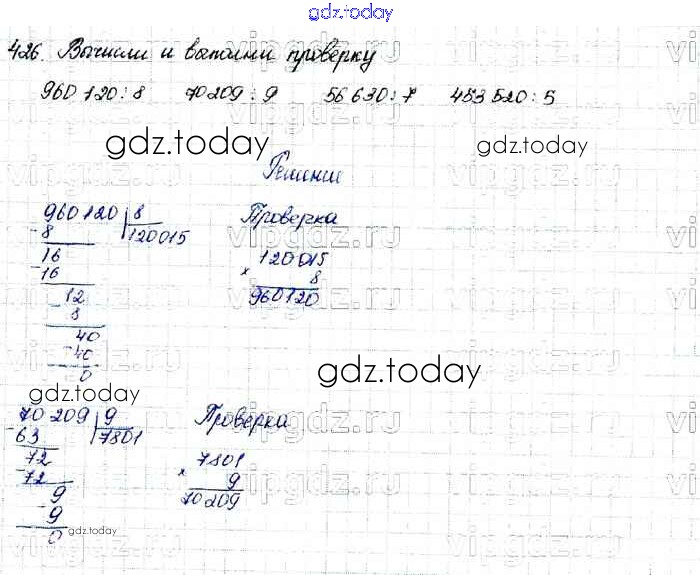 gdz.today
426. Вычисли и выполни проверку
960 120 : 8 70 209 : 9 56 630 : 7 453 520 : 5
gdz.today gdz.today
Решение
960120 | 8 Проверка
- 8 120015
16 120015
- 16 × 8
12 960120
- 8
40
- 40
0
gdz.today
gdz.today
70 209 | 9 Проверка
- 63 7801
72 7801
- 72 × 9
9 70209
- 9
0
gdz.today
vipgdz.ru